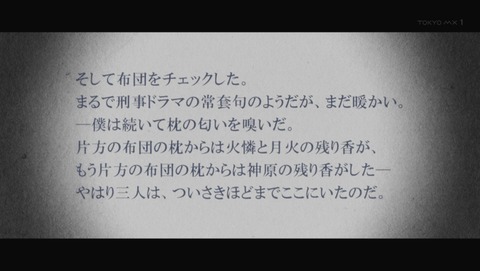 TOKYO MX 1
そして布団をチェックした。
まるで刑事ドラマの常套句のようだが、まだ暖かい。
―僕は続いて枕の匂いを嗅いだ。
片方の布団の枕からは火憐と月火の残り香が、
もう片方の布団の枕からは神原の残り香がした―
やはり三人は、ついさきほどまでここにいたのだ。